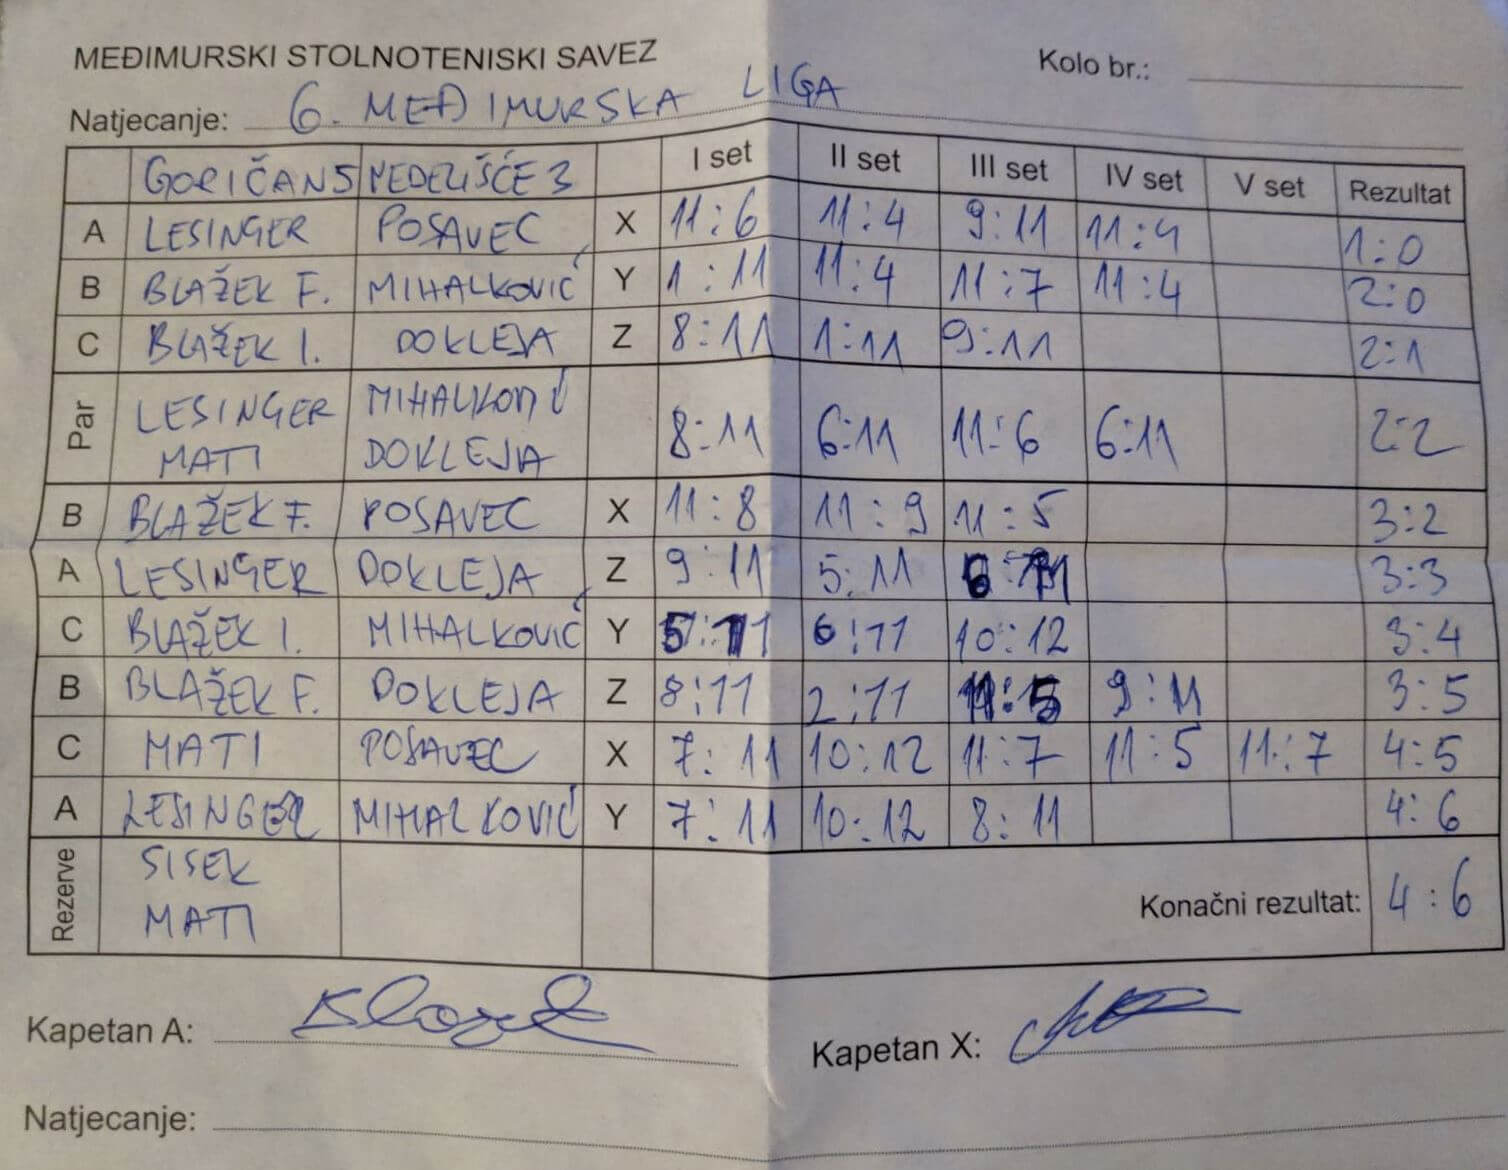 MEĐIMURSKI STOLNOTENISKI SAVEZ
Kolo br.:
Natjecanje: 6. MEĐIMURSKA LIGA
GORIČAN 5 NEDELIŠĆE 3 I set II set III set IV set V set Rezultat
A LESINGER POSAVEC X 11:6 11:4 9:11 11:4 1:0
B BLAŽEK F. MIHALKOVIĆ Y 1:11 11:4 11:7 11:4 2:0
C BLAŽEK I. DOKLEJA Z 8:11 1:11 9:11 2:1
Par LESINGER MIHALKOVIĆ
MATI DOKLEJA 8:11 6:11 11:6 6:11 2:2
B BLAŽEK F. POSAVEC X 11:8 11:9 11:5 3:2
A LESINGER DOKLEJA Z 9:11 5:11 6:11 3:3
C BLAŽEK I. MIHALKOVIĆ Y 5:11 6:11 10:12 3:4
B BLAŽEK F. DOKLEJA Z 8:11 2:11 11:5 9:11 3:5
C MATI POSAVEC X 7:11 10:12 11:7 11:5 11:7 4:5
A LESINGER MIHALKOVIĆ Y 7:11 10:12 8:11 4:6
Rezerve SISEK
MATI
Konačni rezultat: 4:6
Kapetan A:
Kapetan X:
Natjecanje: